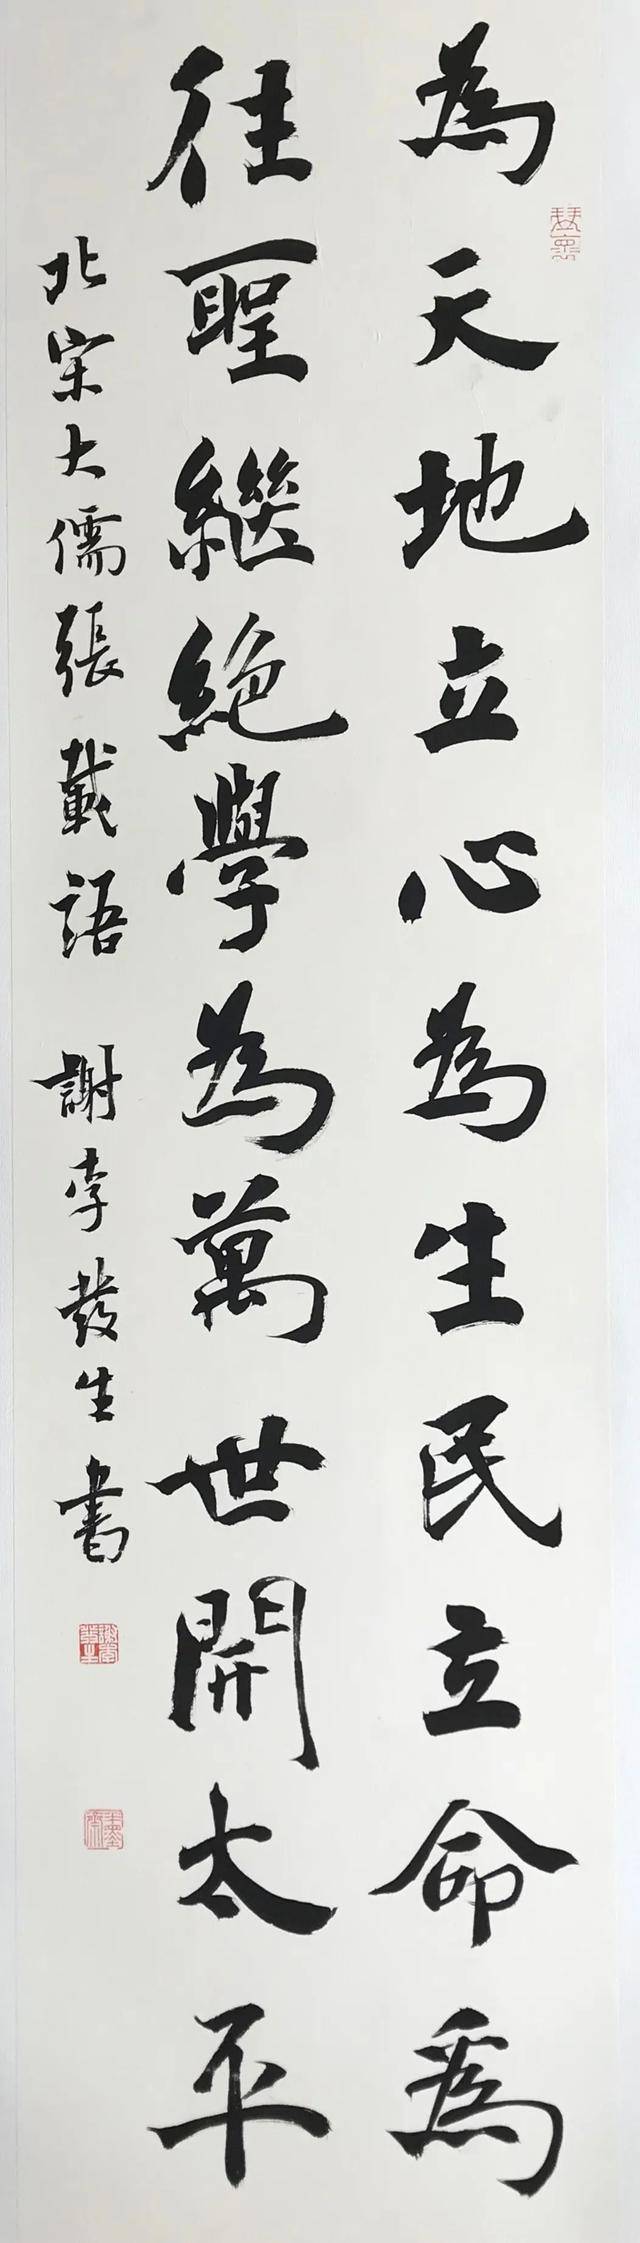 為天地立心為生民立命為
往聖繼絕學為萬世開太平
北宋大儒張載語 謝李發生書